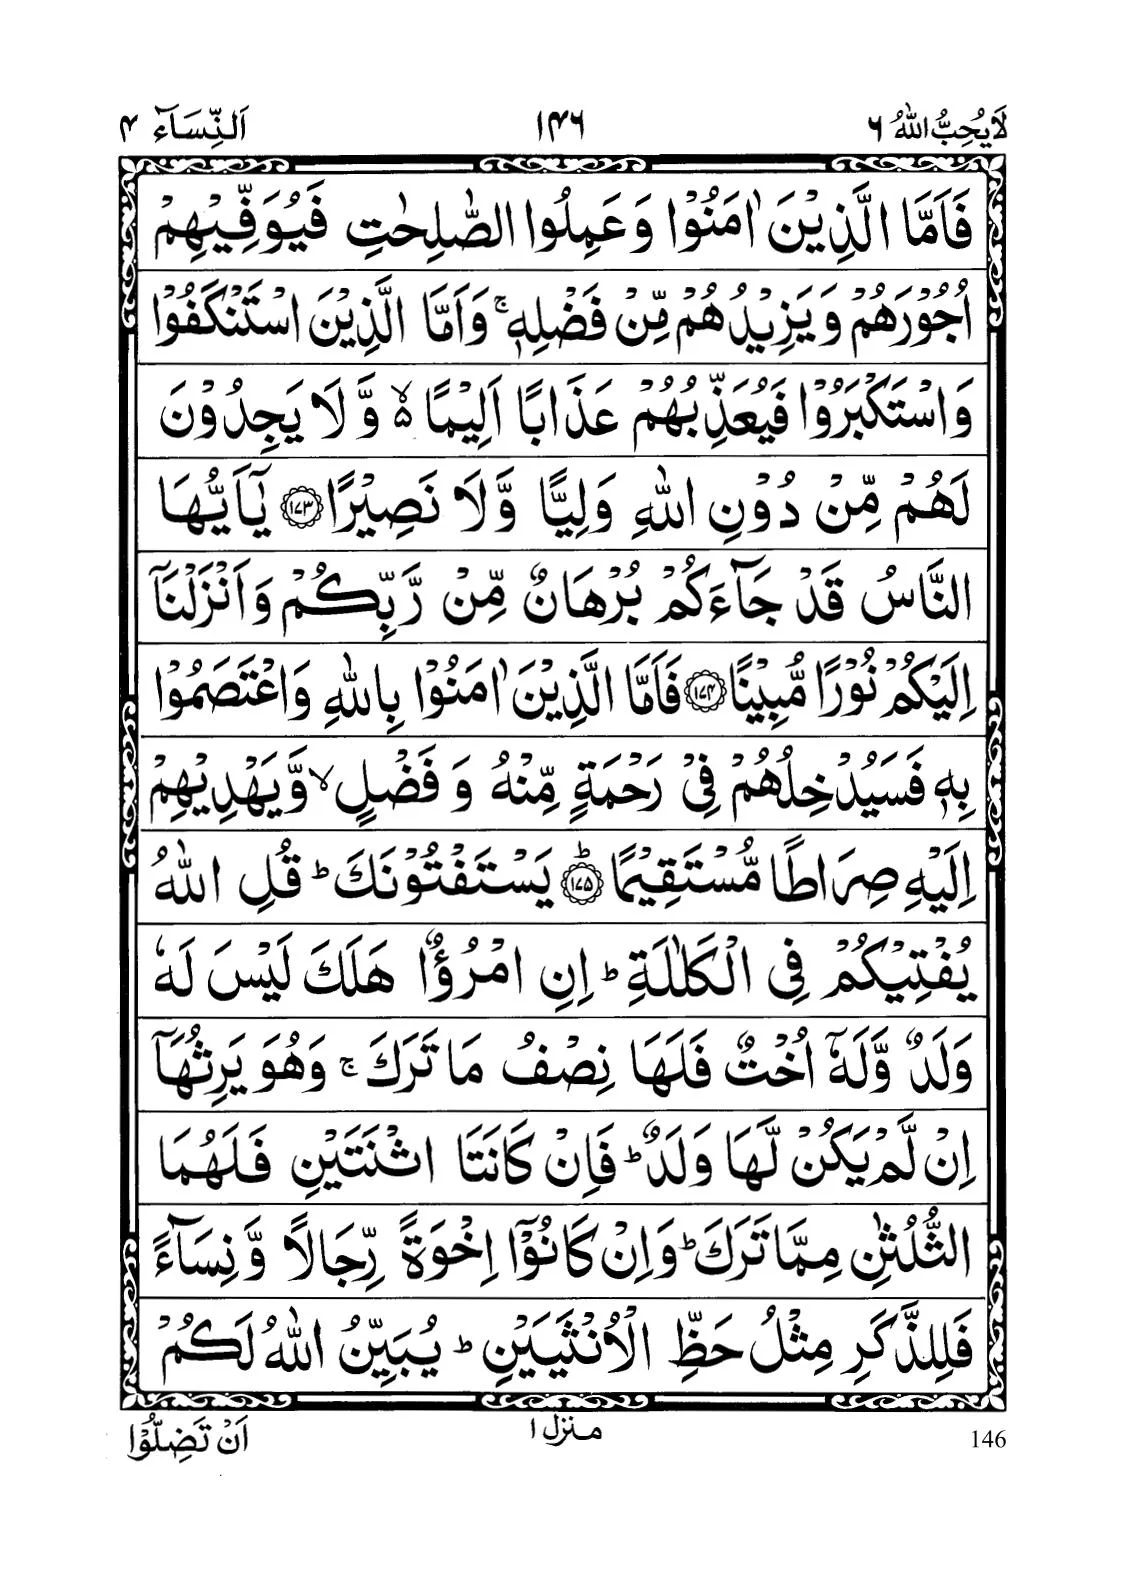 لَايُحِبُّ اللّٰهُ ٦ ١٤٦ اَلنِّسَآء ٤
فَاَمَّا الَّذِيْنَ اٰمَنُوْا وَعَمِلُوا الصّٰلِحٰتِ فَيُوَفِّيْهِمْ
اُجُوْرَهُمْ وَيَزِيْدُهُمْ مِّنْ فَضْلِهٖ ۚ وَاَمَّا الَّذِيْنَ اسْتَنْكَفُوْا
وَاسْتَكْبَرُوْا فَيُعَذِّبُهُمْ عَذَابًا اَلِيْمًا ۙ۵ وَّلَا يَجِدُوْنَ
لَهُمْ مِّنْ دُوْنِ اللّٰهِ وَلِيًّا وَّلَا نَصِيْرًا ﴿١٧٣﴾ يٰٓاَيُّهَا
النَّاسُ قَدْ جَآءَكُمْ بُرْهَانٌ مِّنْ رَّبِّكُمْ وَاَنْزَلْنَآ
اِلَيْكُمْ نُوْرًا مُّبِيْنًا ﴿١٧٤﴾ فَاَمَّا الَّذِيْنَ اٰمَنُوْا بِاللّٰهِ وَاعْتَصَمُوْا
بِهٖ فَسَيُدْخِلُهُمْ فِيْ رَحْمَةٍ مِّنْهُ وَفَضْلٍ ۙ وَّيَهْدِيْهِمْ
اِلَيْهِ صِرَاطًا مُّسْتَقِيْمًا ﴿١٧٥﴾ؕ يَسْتَفْتُوْنَكَ ؕ قُلِ اللّٰهُ
يُفْتِيْكُمْ فِي الْكَلٰلَةِ ؕ اِنِ امْرُؤٌا هَلَكَ لَيْسَ لَهٗ
وَلَدٌ وَّلَهٗٓ اُخْتٌ فَلَهَا نِصْفُ مَا تَرَكَ ۚ وَهُوَ يَرِثُهَآ
اِنْ لَّمْ يَكُنْ لَّهَا وَلَدٌ ؕ فَاِنْ كَانَتَا اثْنَتَيْنِ فَلَهُمَا
الثُّلُثٰنِ مِمَّا تَرَكَ ؕ وَاِنْ كَانُوْٓا اِخْوَةً رِّجَالًا وَّنِسَآءً
فَلِلذَّكَرِ مِثْلُ حَظِّ الْاُنْثَيَيْنِ ؕ يُبَيِّنُ اللّٰهُ لَكُمْ
146 منزل ١ اَنْ تَضِلُّوْا